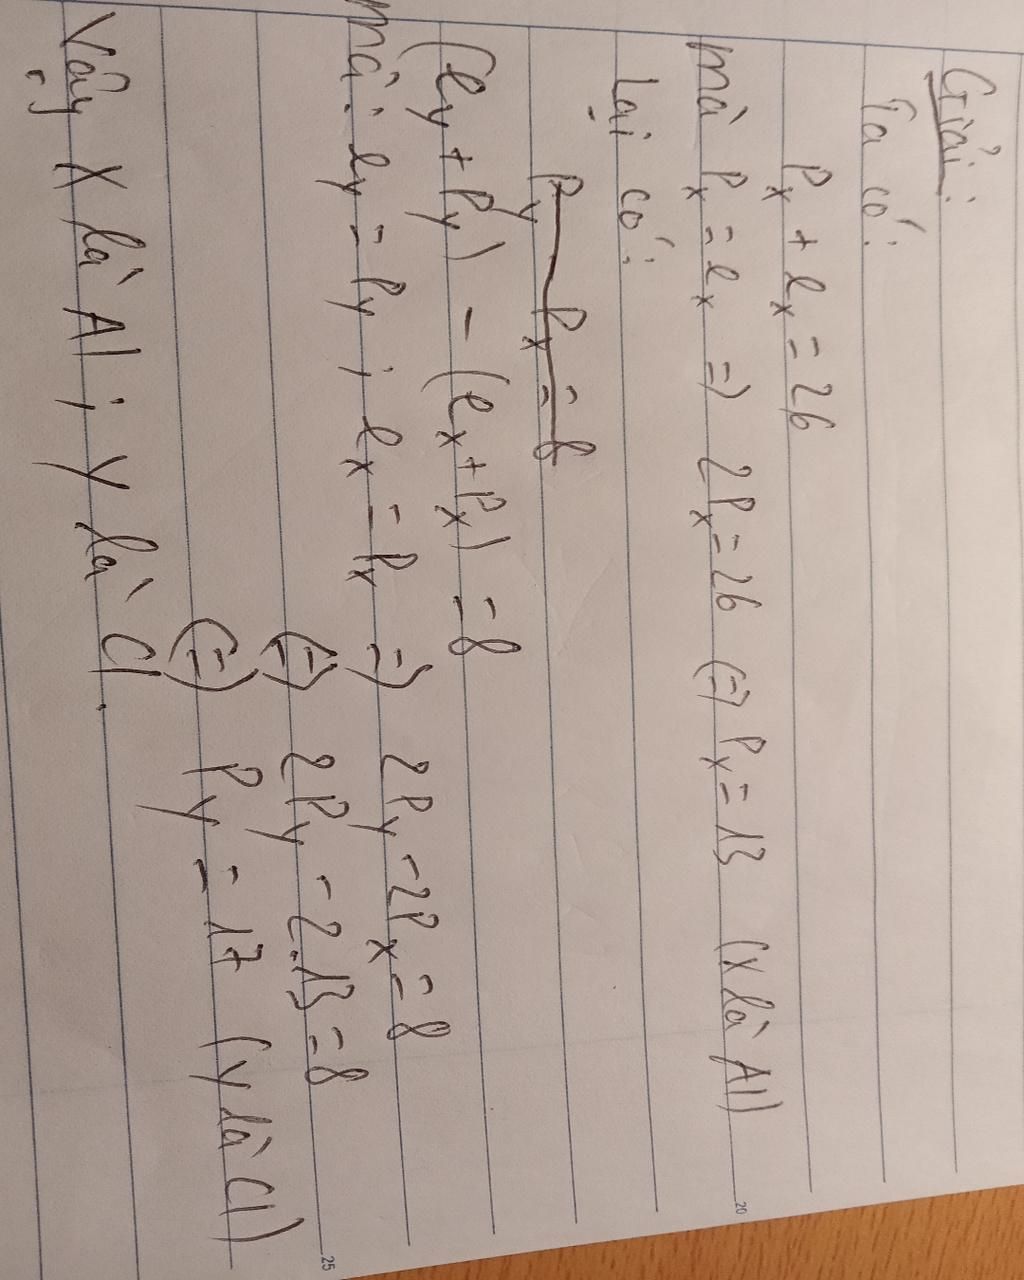 Giải:
Ta có:
Px + ex = 26
mà Px = ex => 2Px = 26 (=) Px = 13 (X là Al)
Lại có:
Py - Px = 8
(ey + Py) - (ex + Px) = 8
mà: ey = Py ; ex = Px => 2Py - 2Px = 8
(=) 2Py - 2.13 = 8
(=) Py = 17 (Y là Cl)
Vậy X là Al ; Y là Cl.
20
25